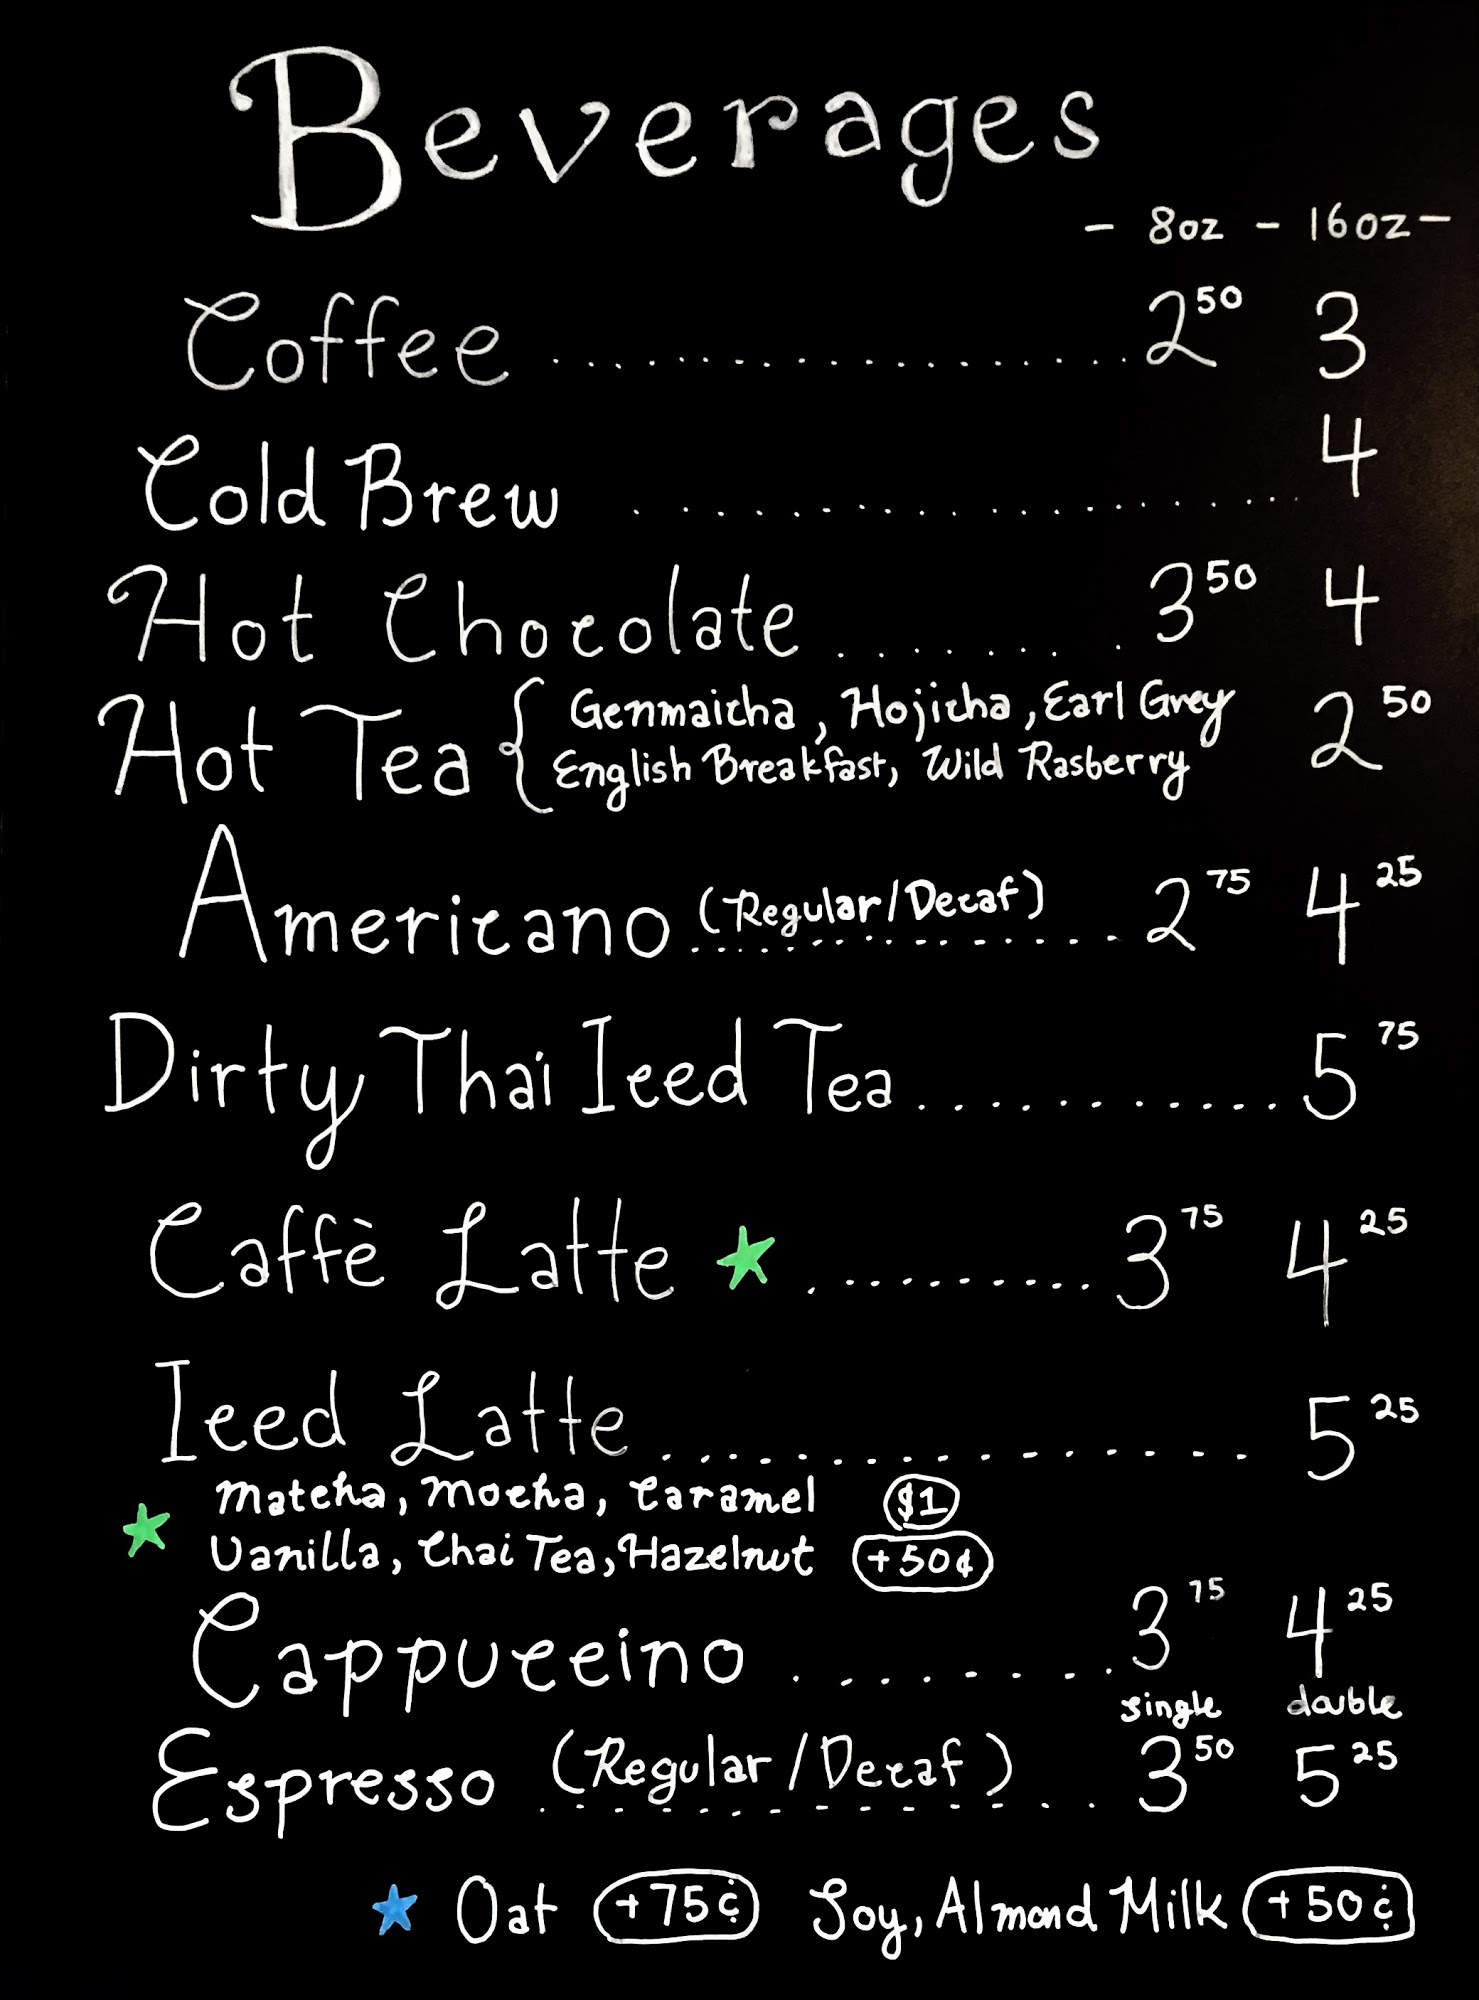 Beverages
- 8oz - 16oz -
Coffee .................. 2 50 3
Cold Brew .................. 4
Hot Chocolate ........ 3 50 4
Hot Tea { Genmaicha, Hojicha, Earl Grey 2 50
English Breakfast, Wild Rasberry
Americano (Regular/Decaf) .............. 2 75 4 25
Dirty Thai Iced Tea ............. 5 75
Caffè Latte ★ .......... 3 75 4 25
Iced Latte ................ 5 25
★ Matcha, Mocha, Caramel $1
Vanilla, Chai Tea, Hazelnut +50¢
Cappuccino ........ 3 75 4 25
single double
Espresso (Regular/Decaf) .............. 3 50 5 25
★ Oat +75¢ Soy, Almond Milk +50¢